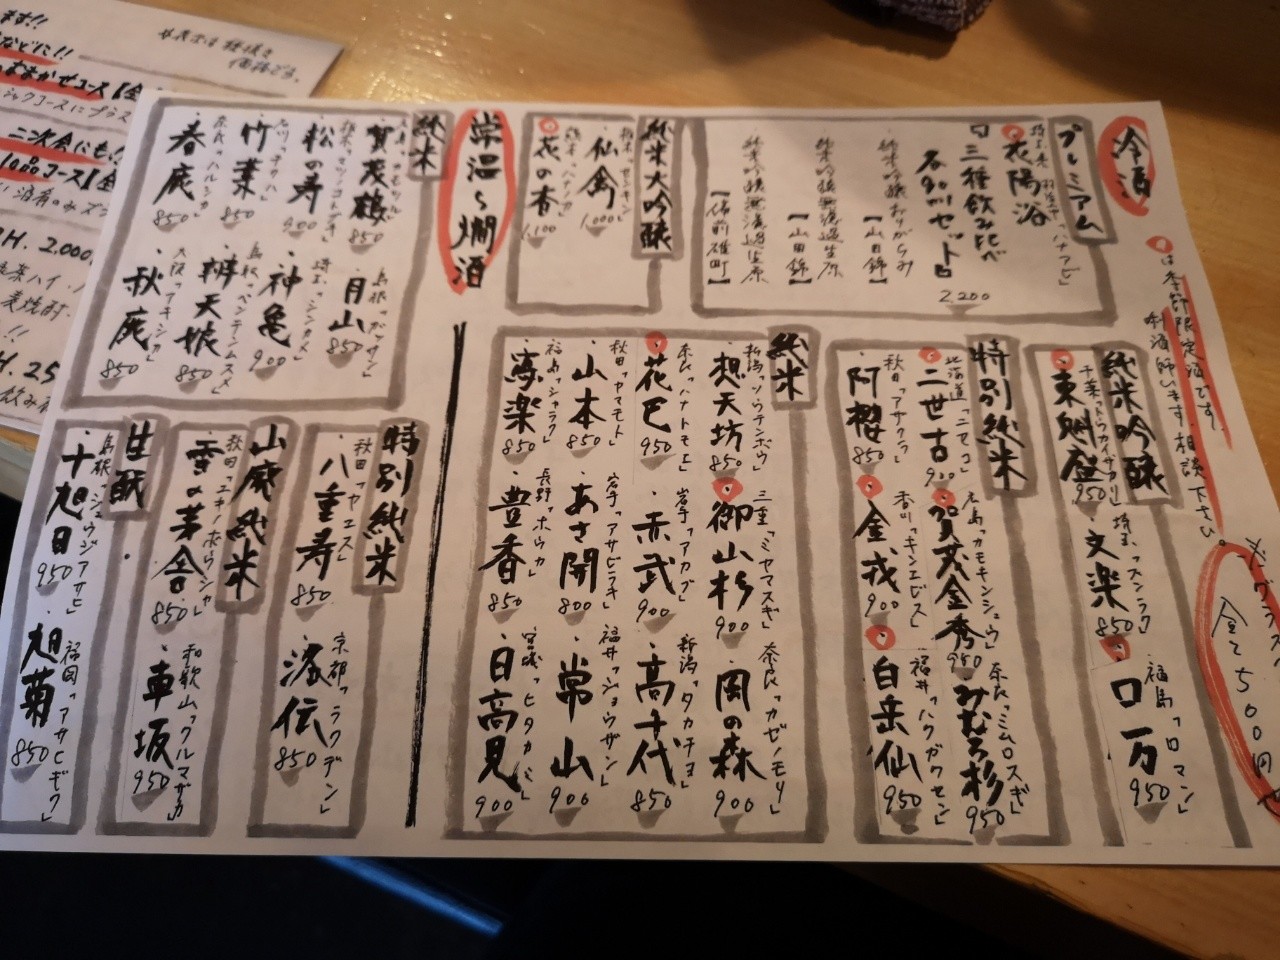 冷酒
は季節限定酒です。
利酒師います。相談下さい。
※グラス
全て500円
プレミアム
埼玉 羽生「ハナアビ」
花陽浴
『三種飲み比べ
おためしセット』
2,200
純米吟醸おりがらみ
【山田錦】
純米吟醸無濾過生原
【山田錦】
純米吟醸無濾過生原
【備前雄町】
純米大吟醸
栃木「センキン」
・仙禽
1,000
「ハナノカ」
花の香
1,100
純米吟醸
千葉「トウカイザカリ」
東魁盛
950
埼玉「ブンラク」
・文楽
850
福島「ロマン」
ロ万
950
特別純米
北海道「ニセコ」
二世古
900
広島「カモキンシュウ」
賀茂金秀
950
奈良「ミムロスギ」
みむろ杉
950
秋田「アサクラ」
・阿櫻
850
香川「キンエビス」
金戎
900
福井「ハクガクセン」
白岳仙
950
純米
新潟「ソウテンボウ」
・想天坊
850
三重「ミヤマスギ」
御山杉
900
奈良「カゼノモリ」
・風の森
900
奈良「ハナトモエ」
花巴
950
岩手「アカブ」
・赤武
900
新潟「タカチヨ」
・高千代
850
秋田「ヤマモト」
・山本
850
岩手「アサビラキ」
・あさ開
800
福井「ジョウザン」
・常山
900
福島「シャラク」
・寫楽
850
長野「ホウカ」
・豊香
850
宮城「ヒタカミ」
・日高見
900
常温〜燗酒
純米
広島「カモツル」
・賀茂鶴
850
島根「ガッサン」
・月山
850
栃木「マツノコトブキ」
・松の寿
900
埼玉「シンカメ」
・神亀
900
石川「チクハ」
・竹葉
850
鳥取「ベンテンムスメ」
・辨天娘
850
奈良「ハルシカ」
・春鹿
850
大阪「アキシカ」
・秋鹿
850
特別純米
秋田「ヤエス」
・八重寿
850
京都「ラクデン」
・洛伝
850
山廃純米
秋田「ユキノボウシャ」
・雪の茅舎
850
和歌山「クルマザカ」
・車坂
950
生酛
島根「ジュウジアサヒ」
・十旭日
950
福岡「アサヒギク」
・旭菊
850
ます!!
などに!!
おまかせコース【全
シャクコースにプラス
二次会にも!!
10品コース【全
H. 2,000
H. 25
価格です。